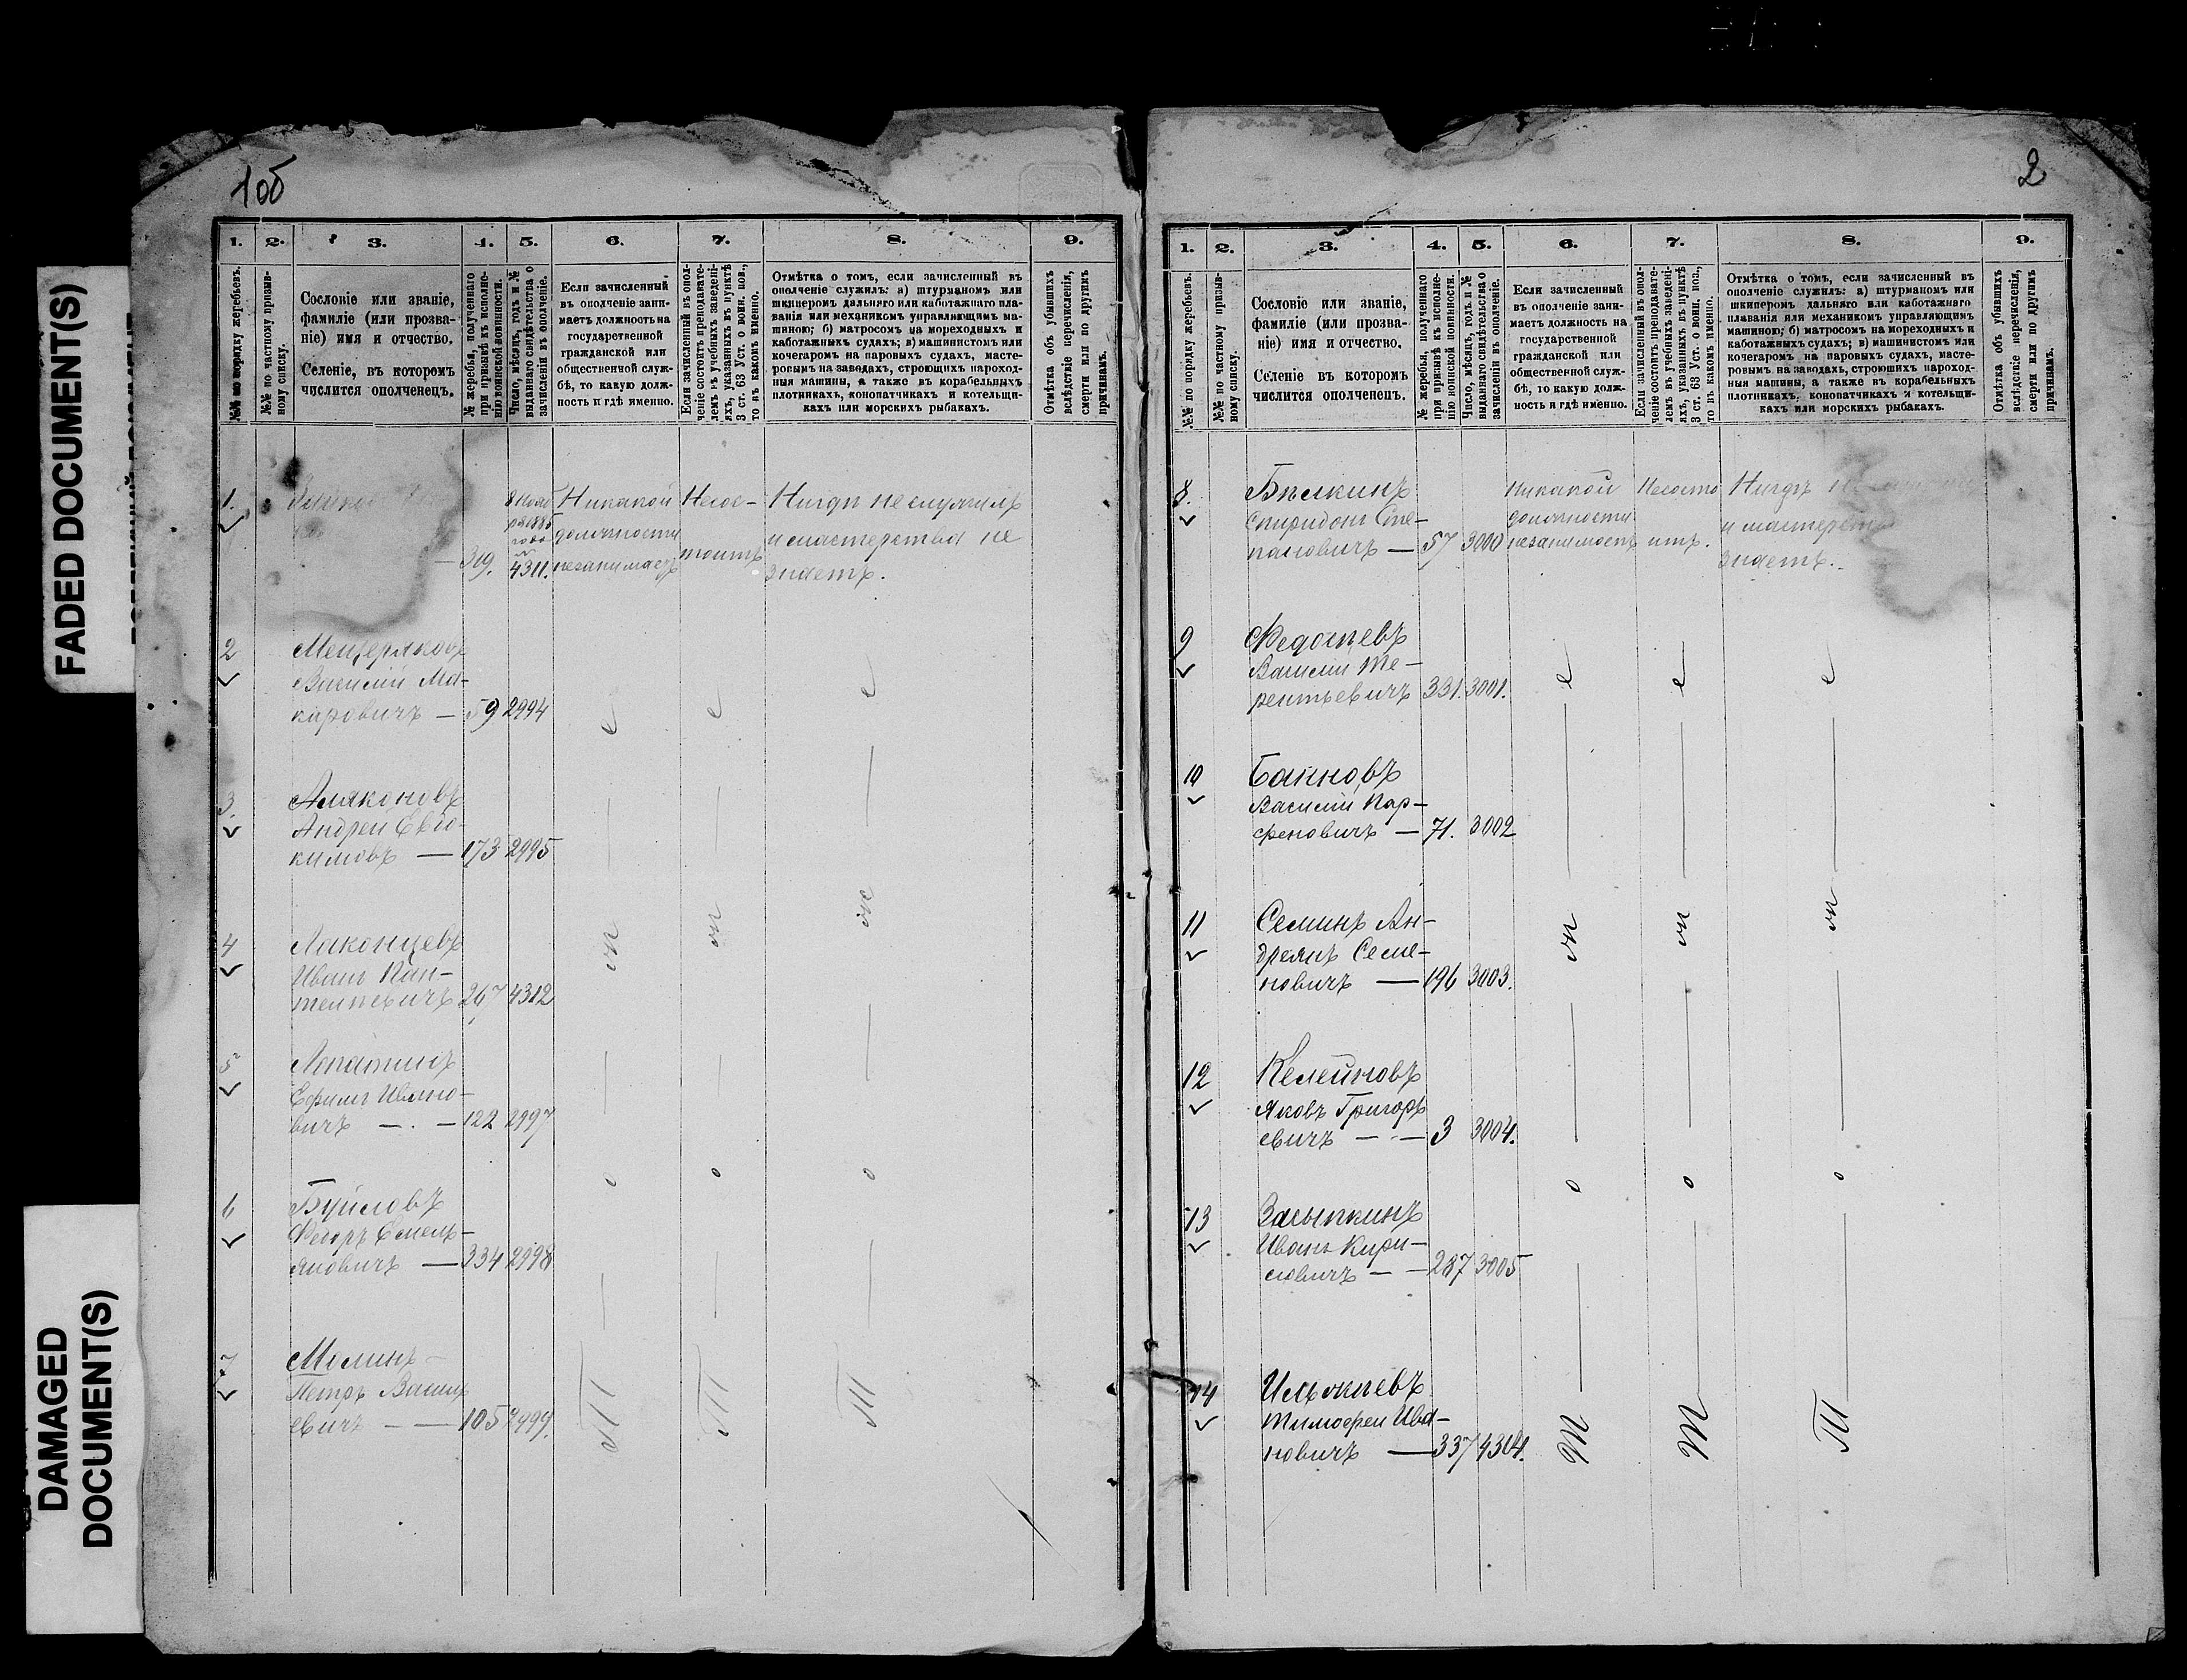 FADED DOCUMENT(S)
DAMAGED
DOCUMENT(S)
1об
1. 2. 3. 4. 5. 6. 7. 8. 9.
№№ по порядку жеребьевъ.
№№ по частному призыв-
ному списку.
Сословіе или званіе,
фамиліе (или прозва-
ніе) имя и отчество.
Селеніе, въ которомъ
числится ополченецъ.
№ жеребья, полученнаго
при призывѣ къ исполне-
нію воинской повинности.
Число, мѣсяцъ, годъ и №
выданнаго свидѣтельства о
зачисленіи въ ополченіе.
Если зачисленный
въ ополченіе зани-
маетъ должность на
государственной
гражданской или
общественной служ-
бѣ, то какую долж-
ность и гдѣ именно.
Если зачисленный въ опол-
ченіе состоитъ преподавате-
лемъ въ учебныхъ заведені-
яхъ, указанныхъ въ пунктѣ
3 ст. 63 Уст. о воин. пов.,
то въ какомъ именно.
Отмѣтка о томъ, если зачисленный въ
ополченіе служилъ: а) штурманомъ или
шкиперомъ дальняго или каботажнаго пла-
ванія или механикомъ управляющимъ ма-
шиною; б) матросомъ на мореходныхъ и
каботажныхъ судахъ; в) машинистомъ или
кочегаромъ на паровыхъ судахъ, масте-
ровымъ на заводахъ, строющихъ пароход-
ныя машины, а также въ корабельныхъ
плотникахъ, конопатчикахъ и котельщи-
кахъ или морскихъ рыбакахъ.
Отмѣтка объ убившихъ
вслѣдствіе перечисленія,
смерти или по другимъ
причинамъ.
1. Никакой Несос- Нигдѣ не служилъ
должности и мастерства не
319. 4311. незанимаетъ тоитъ знаетъ.
2 Мещеряковъ
Василій Ма-
каровичъ — 59 2994
3. Аляконовъ
Андрей Евдо-
кимовъ — 173 2995
4 Лаконцевъ
Иванъ Пан-
телѣевичъ 267 4312
5 Лопатинъ
Ефимъ Ивано-
вичъ — 122 2997
6 Буйловъ
Федоръ Емель-
яновичъ — 334 2998
7 Молинъ
Петръ Василь
евичъ — 105 2999.
е е е
ж
т т
о о о
Т Т Т
2
1. 2. 3. 4. 5. 6. 7. 8. 9.
№№ по порядку жеребьевъ.
№№ по частному призыв-
ному списку.
Сословіе или званіе,
фамиліе (или прозва-
ніе) имя и отчество.
Селеніе въ которомъ
числится ополченецъ.
№ жеребья, полученнаго
при призывѣ къ исполне-
нію воинской повинности.
Число, мѣсяцъ, годъ и №
выданнаго свидѣтельства о
зачисленіи въ ополченіе.
Если зачисленный
въ ополченіе зани-
маетъ должность на
государственной
гражданской или
общественной служ-
бѣ, то какую долж-
ность и гдѣ именно.
Если зачисленный въ опол-
ченіе состоитъ преподавате-
лемъ въ учебныхъ заведені-
яхъ, указанныхъ въ пунктѣ
3 ст. 63 Уст. о воин. пов.,
то въ какомъ именно.
Отмѣтка о томъ, если зачисленный въ
ополченіе служилъ: а) штурманомъ или
шкиперомъ дальняго или каботажнаго
плаванія или механикомъ управляющимъ
машиною; б) матросомъ на мореходныхъ и
каботажныхъ судахъ; в) машинистомъ или
кочегаромъ на паровыхъ судахъ, масте-
ровымъ на заводахъ, строющихъ пароход-
ныя машины, а также въ корабельныхъ
плотникахъ, конопатчикахъ и котельщи-
кахъ или морскихъ рыбакахъ.
Отмѣтка объ убившихъ
вслѣдствіе перечисленія,
смерти или по другимъ
причинамъ.
8. Бѣлкинъ Никакой Несосто Нигдѣ
Спиридонъ Сте- должности и мастерств
пановичъ — 57 3000 незанимаетъ итъ. знаетъ.
9 Федотевъ
Василій Те-
рентьевичъ 331. 3001.
10 Баиновъ
Василій Пар-
феновичъ — 71. 3002
11 Семинъ Ан-
дреянъ Семе-
новичъ — 196 3003.
12 Келейновъ
Яковъ Григорь
евичъ — 3 3004.
13 Засыпкинъ
Иванъ Кири-
ловичъ — 287 3005
14
Тимофей Ива-
новичъ — 337 4314.
е е е
т т т
о о о
Т Т Т